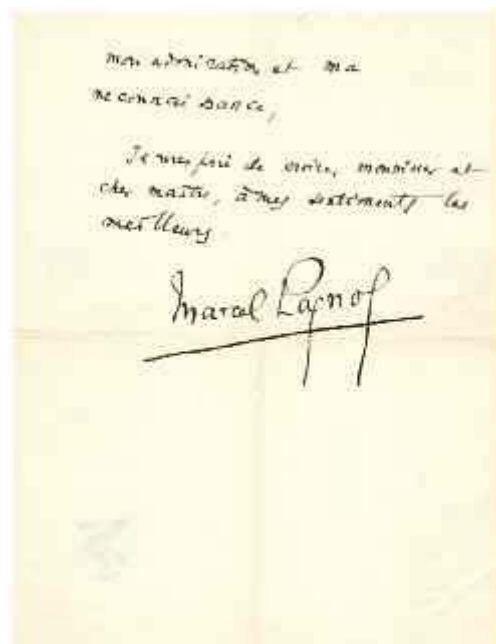 mon admiration et ma
reconnaissance,
Je vous prie de croire, monsieur et
cher maître, à mes sentiments les
meilleurs
Marcel Pagnol